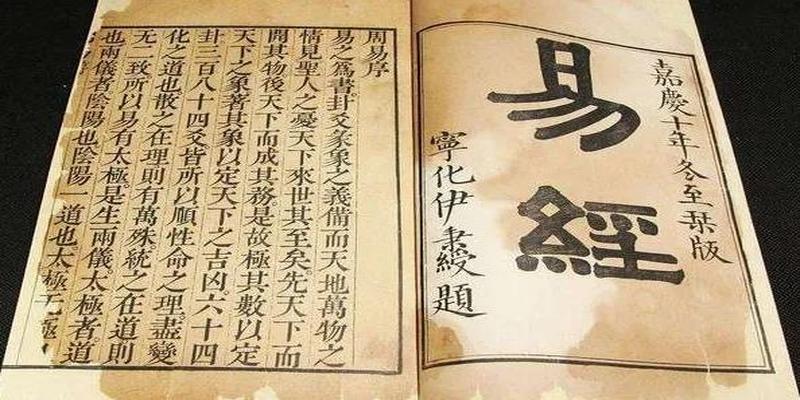 嘉慶十年冬至栞版
易經
寧化伊秉綬題
周易序
易之為書卦爻彖象之義備而天地萬物之
情見聖人之憂天下來世其至矣先天下而
開其物後天下而成其務是故極其數以定
天下之象著其象以定天下之吉凶六十四
卦三百八十四爻皆所以順性命之理盡變
化之道也散之在理則有萬殊統之在道則
无二致所以易有太極是生兩儀太極者道
也兩儀者陰陽也陰陽一道也太極无極